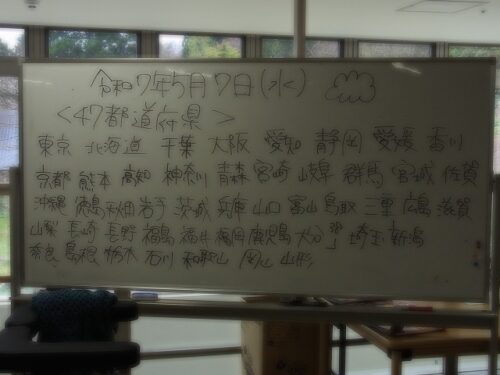 令和7年5月7日(水)
<47都道府県>
東京 北海道 千葉 大阪 愛知 静岡 愛媛 香川
京都 熊本 高知 神奈川 青森 宮崎 岐阜 群馬 宮城 佐賀
沖縄 徳島 秋田 岩手 茨城 兵庫 山口 富山 鳥取 三重 広島 滋賀
山梨 長崎 長野 福島 福井 福岡 鹿児島 大分 埼玉 新潟
奈良 島根 栃木 石川 和歌山 岡山 山形